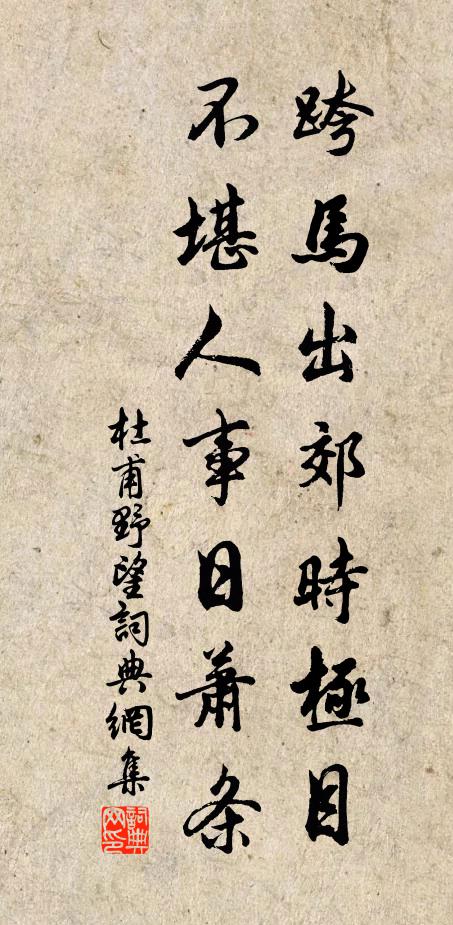 跨馬出郊時極目
不堪人事日蕭条
杜甫野望詞典網集
詞典網印